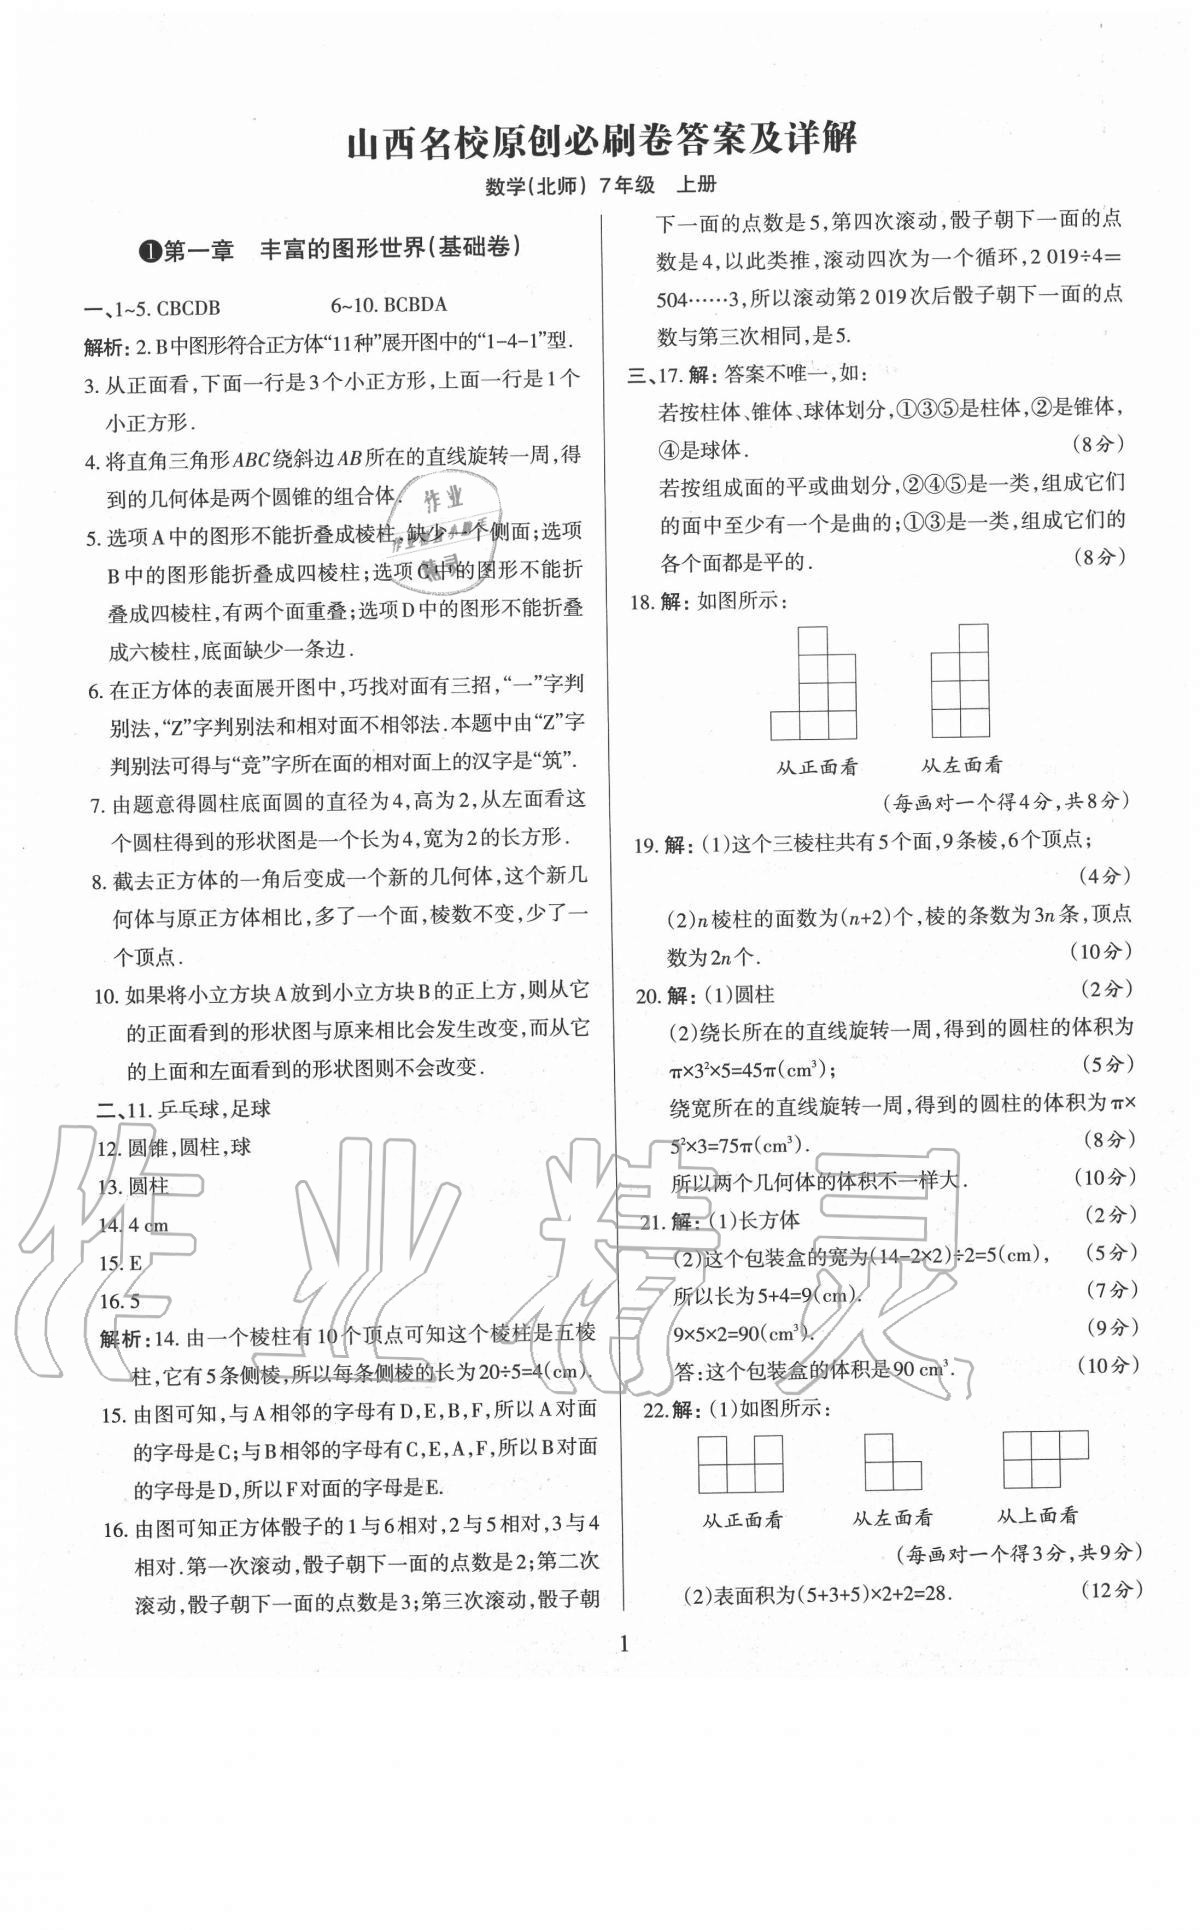 山西名校原创必刷卷答案及详解
数学(北师) 7年级 上册
❶第一章 丰富的图形世界(基础卷)
一、1~5. CBCDB 6~10. BCBDA
解析:2. B中图形符合正方体“11种”展开图中的“1-4-1”型.
3. 从正面看,下面一行是3个小正方形,上面一行是1个
小正方形.
4. 将直角三角形ABC绕斜边AB所在的直线旋转一周,得
到的几何体是两个圆锥的组合体.
5. 选项A中的图形不能折叠成棱柱,缺少一个侧面;选项
B中的图形能折叠成四棱柱;选项C中的图形不能折
叠成四棱柱,有两个面重叠;选项D中的图形不能折叠
成六棱柱,底面缺少一条边.
6. 在正方体的表面展开图中,巧找对面有三招,“一”字判
别法,“Z”字判别法和相对面不相邻法.本题中由“Z”字
判别法可得与“竞”字所在面的相对面上的汉字是“筑”.
7. 由题意得圆柱底面圆的直径为4,高为2,从左面看这
个圆柱得到的形状图是一个长为4,宽为2的长方形.
8. 截去正方体的一角后变成一个新的几何体,这个新几
何体与原正方体相比,多了一个面,棱数不变,少了一
个顶点.
10. 如果将小立方块A放到小立方块B的正上方,则从它
的正面看到的形状图与原来相比会发生改变,而从它
的上面和左面看到的形状图则不会改变.
二、11. 乒乓球,足球
12. 圆锥,圆柱,球
13. 圆柱
14. 4 cm
15. E
16. 5
解析:14. 由一个棱柱有10个顶点可知这个棱柱是五棱
柱,它有5条侧棱,所以每条侧棱的长为20÷5=4(cm).
15. 由图可知,与A相邻的字母有D,E,B,F,所以A对面
的字母是C;与B相邻的字母有C,E,A,F,所以B对面
的字母是D,所以F对面的字母是E.
16. 由图可知正方体骰子的1与6相对,2与5相对,3与4
相对.第一次滚动,骰子朝下一面的点数是2;第二次
滚动,骰子朝下一面的点数是3;第三次滚动,骰子朝
下一面的点数是5,第四次滚动,骰子朝下一面的点
数是4,以此类推,滚动四次为一个循环,2 019÷4=
504……3,所以滚动第2 019次后骰子朝下一面的点
数与第三次相同,是5.
三、17. 解:答案不唯一,如:
若按柱体、锥体、球体划分,①③⑤是柱体,②是锥体,
④是球体. (8分)
若按组成面的平或曲划分,②④⑤是一类,组成它们
的面中至少有一个是曲的;①③是一类,组成它们的
各个面都是平的. (8分)
18. 解:如图所示:
从正面看 从左面看
(每画对一个得4分,共8分)
19. 解:(1)这个三棱柱共有5个面,9条棱,6个顶点;
(4分)
(2)n棱柱的面数为(n+2)个,棱的条数为3n条,顶点
数为2n个. (10分)
20. 解:(1)圆柱 (2分)
(2)绕长所在的直线旋转一周,得到的圆柱的体积为
π×3²×5=45π(cm³); (5分)
绕宽所在的直线旋转一周,得到的圆柱的体积为π×
5²×3=75π(cm³). (8分)
所以两个几何体的体积不一样大. (10分)
21. 解:(1)长方体 (2分)
(2)这个包装盒的宽为(14-2×2)÷2=5(cm), (5分)
所以长为5+4=9(cm). (7分)
9×5×2=90(cm³). (9分)
答:这个包装盒的体积是90 cm³. (10分)
22. 解:(1)如图所示:
从正面看 从左面看 从上面看
(每画对一个得3分,共9分)
(2)表面积为(5+3+5)×2+2=28. (12分)
1
作业精灵
作业
精灵